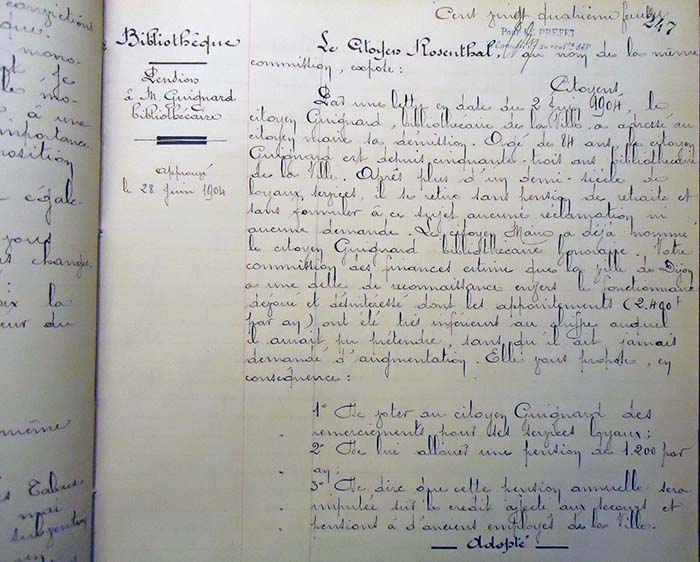 convictions
que.
mono-
et je
le mo-
à une
importance
position
égale-
vous
es changer,
la
eur du
même
mai
subvention
Cent vingt quatrième feuillet
247
POUR LE PREFET
Bibliothèque
Pension
à M. Guignard
bibliothécaire
approuvé
le 28 juin 1904
Le Citoyen Rosenthal, au nom de la même
commission, expose :
Citoyens,
Par une lettre en date du 2 juin 1904, le
citoyen Guignard, bibliothécaire de la Ville, a adressé au
citoyen maire sa démission. Agé de 84 ans, le citoyen
Guignard est depuis cinquante-trois ans bibliothécaire
de la Ville. Après plus d'un demi-siècle de
loyaux services, il se retire sans pension de retraite et
sans formuler à ce sujet aucune réclamation ni
aucune demande. Le citoyen Maire a déjà nommé
le citoyen Guignard bibliothécaire honoraire. Votre
commission des finances estime que la ville de Dijon
a une dette de reconnaissance envers le fonctionnaire
dévoué et désintéressé dont les appointements (2.490 f
par an) ont été très inférieurs au chiffre auquel
il aurait pu prétendre, sans qu'il ait jamais
demandé d'augmentation. Elle vous propose, en
conséquence :
1° De voter au citoyen Guignard des
remerciements pour ses services loyaux ;
2° De lui allouer une pension de 1.200 par
an ;
3° De dire que cette pension annuelle sera
imputée sur le crédit affecté aux secours et
pensions à d'anciens employés de la Ville.
Adopté